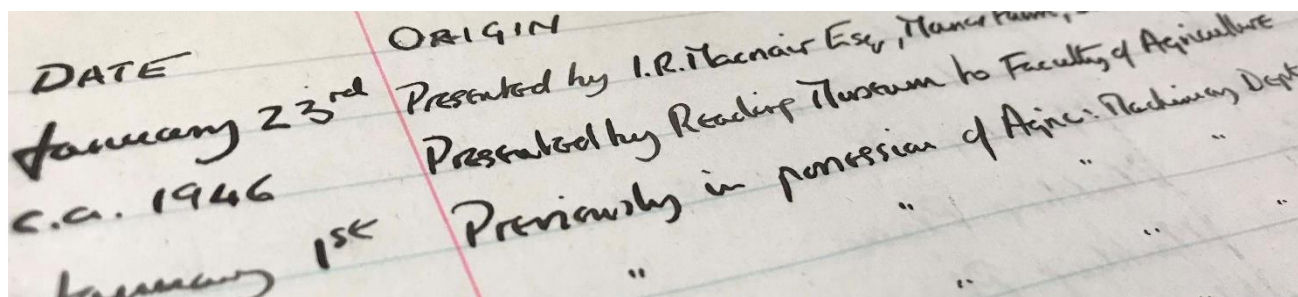 DATE ORIGIN
January 23rd Presented by I.R. Macnair Esq, Manor Farm,
c.a. 1946 Presented by Reading Museum to Faculty of Agriculture
January 1st Previously in possession of Agric: Machinery Dept
" " "
" " "